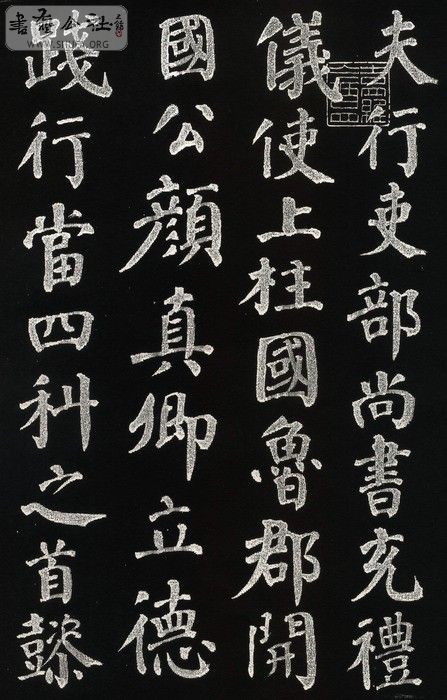 夫行吏部尚書充禮
儀使上柱國魯郡開
國公顏真卿立德
踐行當四科之首懿
書畫企社
WWW.SINFA.ORG